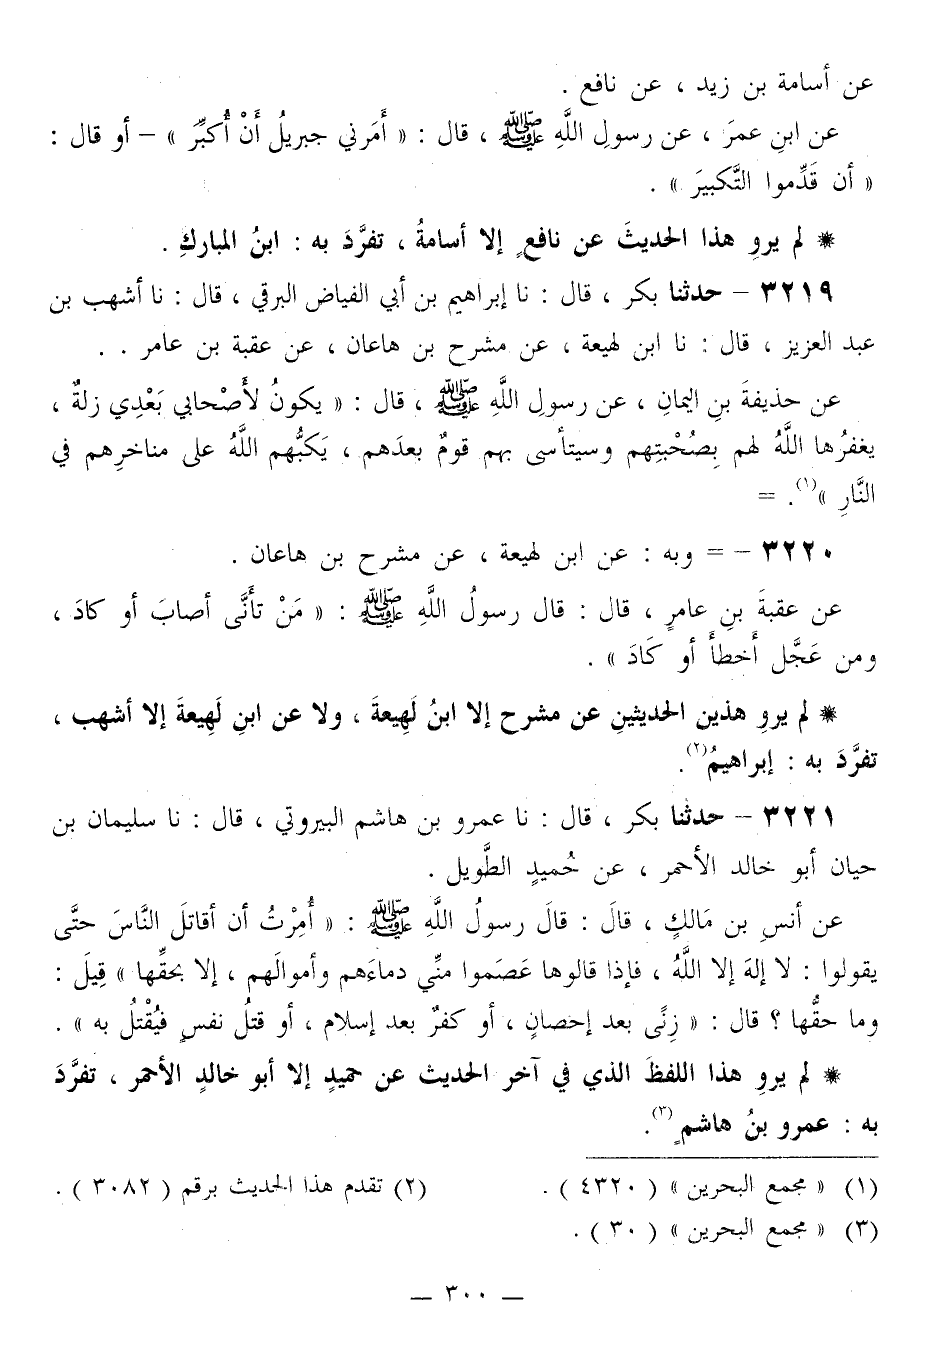 عن أسامة بن زيد ، عن نافع .
عن ابنِ عمرَ ، عن رسولِ اللَّهِ ﷺ ، قال : « أَمَرني جبريلُ أَنْ أُكبِّرَ » – أو قال :
« أن قَدِّموا التَّكبيرَ » .
* لم يروِ هذا الحديثَ عن نافعٍ إلا أسامةُ ، تفرَّدَ به : ابنُ المباركِ .
٣٢١٩ – حدثنا بكر ، قال : نا إبراهيم بن أبي الفياض البرقي ، قال : نا أشهب بن
عبد العزيز ، قال : نا ابن لهيعة ، عن مشرح بن هاعان ، عن عقبة بن عامر . .
عن حذيفةَ بنِ اليمانِ ، عن رسولِ اللَّهِ ﷺ ، قال : « يكونُ لأَصْحابي بَعْدِي زلةٌ ،
يغفرُها اللَّهُ لهم بِصُحْبتِهم وسيتأسى بهم قومٌ بعدَهم ، يَكبُّهم اللَّهُ على مناخرِهم في
النَّارِ »(١). =
٣٢٢٠ – = وبه : عن ابن لهيعة ، عن مشرح بن هاعان .
عن عقبةَ بنِ عامرٍ ، قال : قال رسولُ اللَّهِ ﷺ : « مَنْ تأَنَّى أصابَ أو كادَ ،
ومن عَجَّل أَخطأَ أو كَادَ » .
* لم يروِ هذين الحديثينِ عن مشرح إلا ابنُ لَهِيعةَ ، ولا عن ابنِ لَهِيعةَ إلا أشهب ،
تفرَّدَ به : إبراهيمُ(٢).
٣٢٢١ – حدثنا بكر ، قال : نا عمرو بن هاشم البيروتي ، قال : نا سليمان بن
حيان أبو خالد الأحمر ، عن حُميدٍ الطَّويل .
عن أنسِ بن مَالكٍ ، قالَ : قالَ رسولُ اللَّهِ ﷺ : « أُمِرْتُ أن أقاتلَ النَّاسَ حتَّى
يقولوا : لا إلهَ إلا اللَّهُ ، فإذا قالوها عَصَموا منِّي دماءَهم وأموالَهم ، إلا بحقِّها » قِيلَ :
وما حقُّها ؟ قال : « زِنًى بعد إحصانٍ ، أو كفرٌ بعد إسلام ، أو قتلُ نفسٍ فيُقْتلُ به » .
* لم يروِ هذا اللفظَ الذي في آخر الحديث عن حميدٍ إلا أبو خالدٍ الأحمر ، تفرَّدَ
به : عمرو بنُ هاشمٍ(٣).
(١) « مجمع البحرين » ( ٤٣٢٠ ) . (٢) تقدم هذا الحديث برقم ( ٣٠٨٢ ) .
(٣) « مجمع البحرين » ( ٣٠ ) .
– ٣٠٠ –